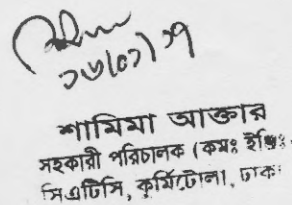 ১৬/০১/১৭
শামিমা আক্তার
সহকারী পরিচালক (কমঃ ইঞ্জিঃ
সিএটিসি, কুর্মিটোলা, ঢাকা